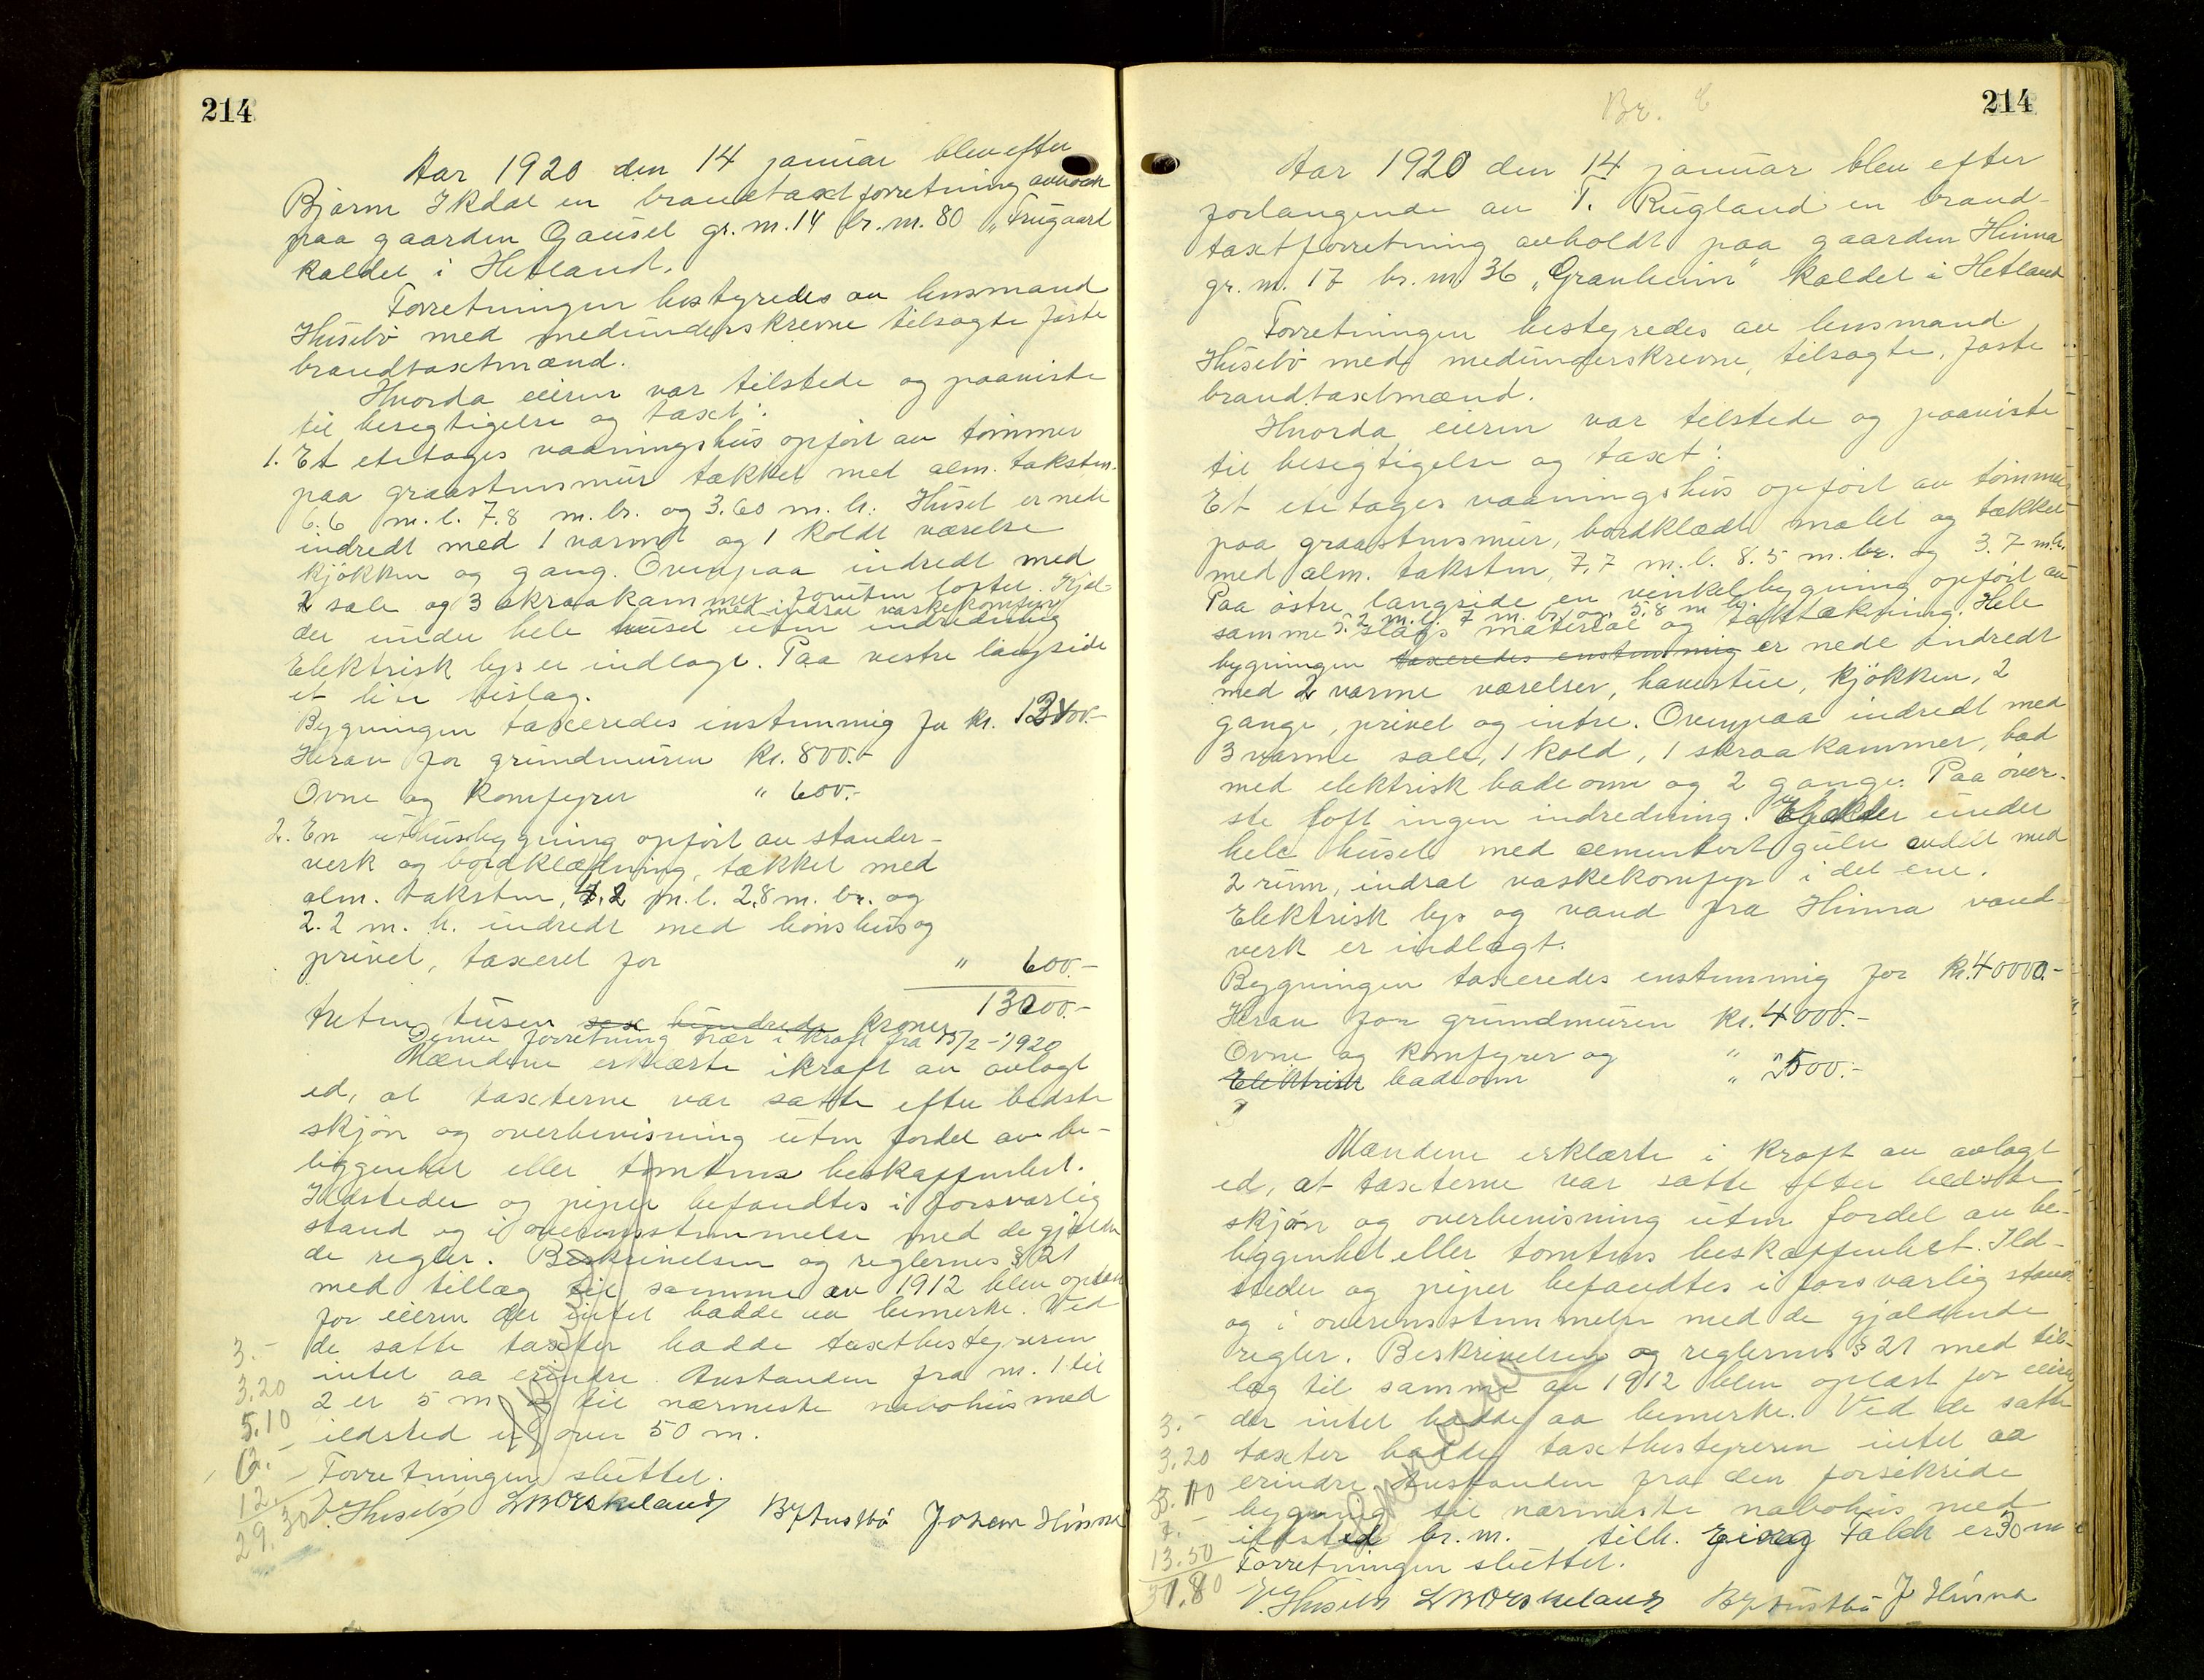 214
Aar 1920 den 14 januar blev efter
Bjarne Ikdal en brandtaxtforretning avholdt
paa gaarden Gausel gr. m. 14 br. m. 80 „Frugaard
kaldet i Hetland.
Forretningen bestyredes av lensmand
Husebö med medunderskrevne tilsagte faste
brandtaxtmænd.
Hvorda eieren var tilstede og paaviste
til besigtigelse og taxt:
1. Et etetages vaaningshus opfört av tömmer
paa graastensmur tækket med alm. taksten.
6.6 m. l. 7.8 m. br. og 3.60 m. h. Huset er nede
indredt med 1 varmt og 1 koldt værelse
kjökken og gang. Ovenpaa indredt med
2 sale og 3 skraakammer foruten loftet. Kjel-
med indsat vaskekomfyr
der under hele huset uten indredning
Elektrisk lys er indlagt. Paa vestre langside
et lite bislag.
Bygningen taxeredes enstemmig for kr.
Herav for grundmuren kr. 800.-
Ovne og komfyrer " 600.-
2. En uthusbygning opfört av stander-
verk og bordklædning, tækket med
alm. taksten, 4.2 m. l. 2.8 m. br. og
2.2 m. h. indredt med hönshus og
privet, taxeret for " 600.-
13000.-
tretten tusen sex hundrede kroner
Denne forretning trær i kraft fra 15/2 - 1920
Mændene erklærte i kraft av avlagt
ed, at taxterne var satte efter bedste
skjön og overbevisning uten fordel av be-
liggenhet eller tomtens beskaffenhet.
Ildsteder og piper befandtes i forsvarlig
stand og i overensstemmelse med de gjælden
de regler. Beskrivelsen og reglernes § 21
med tillæg til samme av 1912 blev oplæst
for eieren der intet hadde aa bemerke. Ved
de satte taxter hadde taxtbestyreren
intet aa erindre. Avstanden fra m. 1 til
2 er 5 m og til nærmeste nabohus med
ildsted er over 50 m.
Forretningen sluttet.
3.-
3.20
5.10
6.-
12.
29.30
E. Husebö L M Orskeland B Y Austbö Johan Hinna
Br. 8
214
Aar 1920 den 14 januar blev efter
forlangende av T. Rugland en brand-
taxtforretning avholdt paa gaarden Hinna
gr. m. 17 br. m. 36 „Granheim" kaldet i Hetland
Forretningen bestyredes av lensmand
Husebö med medunderskrevne, tilsagte, faste
brandtaxtmænd.
Hvorda eieren var tilstede og paaviste
til besigtigelse og taxt:
Et etetages vaaningshus opfört av tömmer
paa graastensmur, bordklædt malet og tækket
med alm. taksten, 7,7 m. l. 8.5 m. br. og 3.7 m. h.
Paa östre langside en vinkelbygning opfört av
5.2 m. l. 7 m. br. og 5.8 m h.
samme slags material og taktækning. Hele
bygningen taxeredes enstemmig er nede indredt
med 2 varme værelser, havestue, kjökken, 2
gange, privet og entre. Ovenpaa indredt med
3 varme sale, 1 kold, 1 skraakammer, bad
med elektrisk badeovn og 2 gange. Paa över-
ste loft ingen indredning. Kjelder under
hele huset med cementert gulv avdelt med
2 rum, indsat vaskekomfyr i det ene.
Elektrisk lys og vand fra Hinna vand-
verk er indlagt.
Bygningen taxeredes enstemmig for kr. 40000.-
Herav for grundmuren kr. 4000.-
Ovne og komfyrer og "
Elektrisk badeovn " 2500.-
Mændene erklærte i kraft av avlagt
ed, at taxterne var satte efter bedste
skjön og overbevisning uten fordel av be-
liggenhet eller tomtens beskaffenhet. Ild-
steder og piper befandtes i forsvarlig stand
og i overensstemmelse med de gjældende
regler. Beskrivelsen og reglernes § 21 med til-
læg til samme av 1912 blev oplæst for eieren
der intet hadde aa bemerke. Ved de satte
taxter hadde taxtbestyreren intet aa
erindre. Avstanden fra den forsikrede
bygning til nærmeste nabohus med
ildsted br. m. tilh. Falch er 30 m
Forretningen sluttet.
3.-
3.20
5.10
7.-
13.50
31.80
E. Husebö L M Orskeland B Y Austbö J Hinna